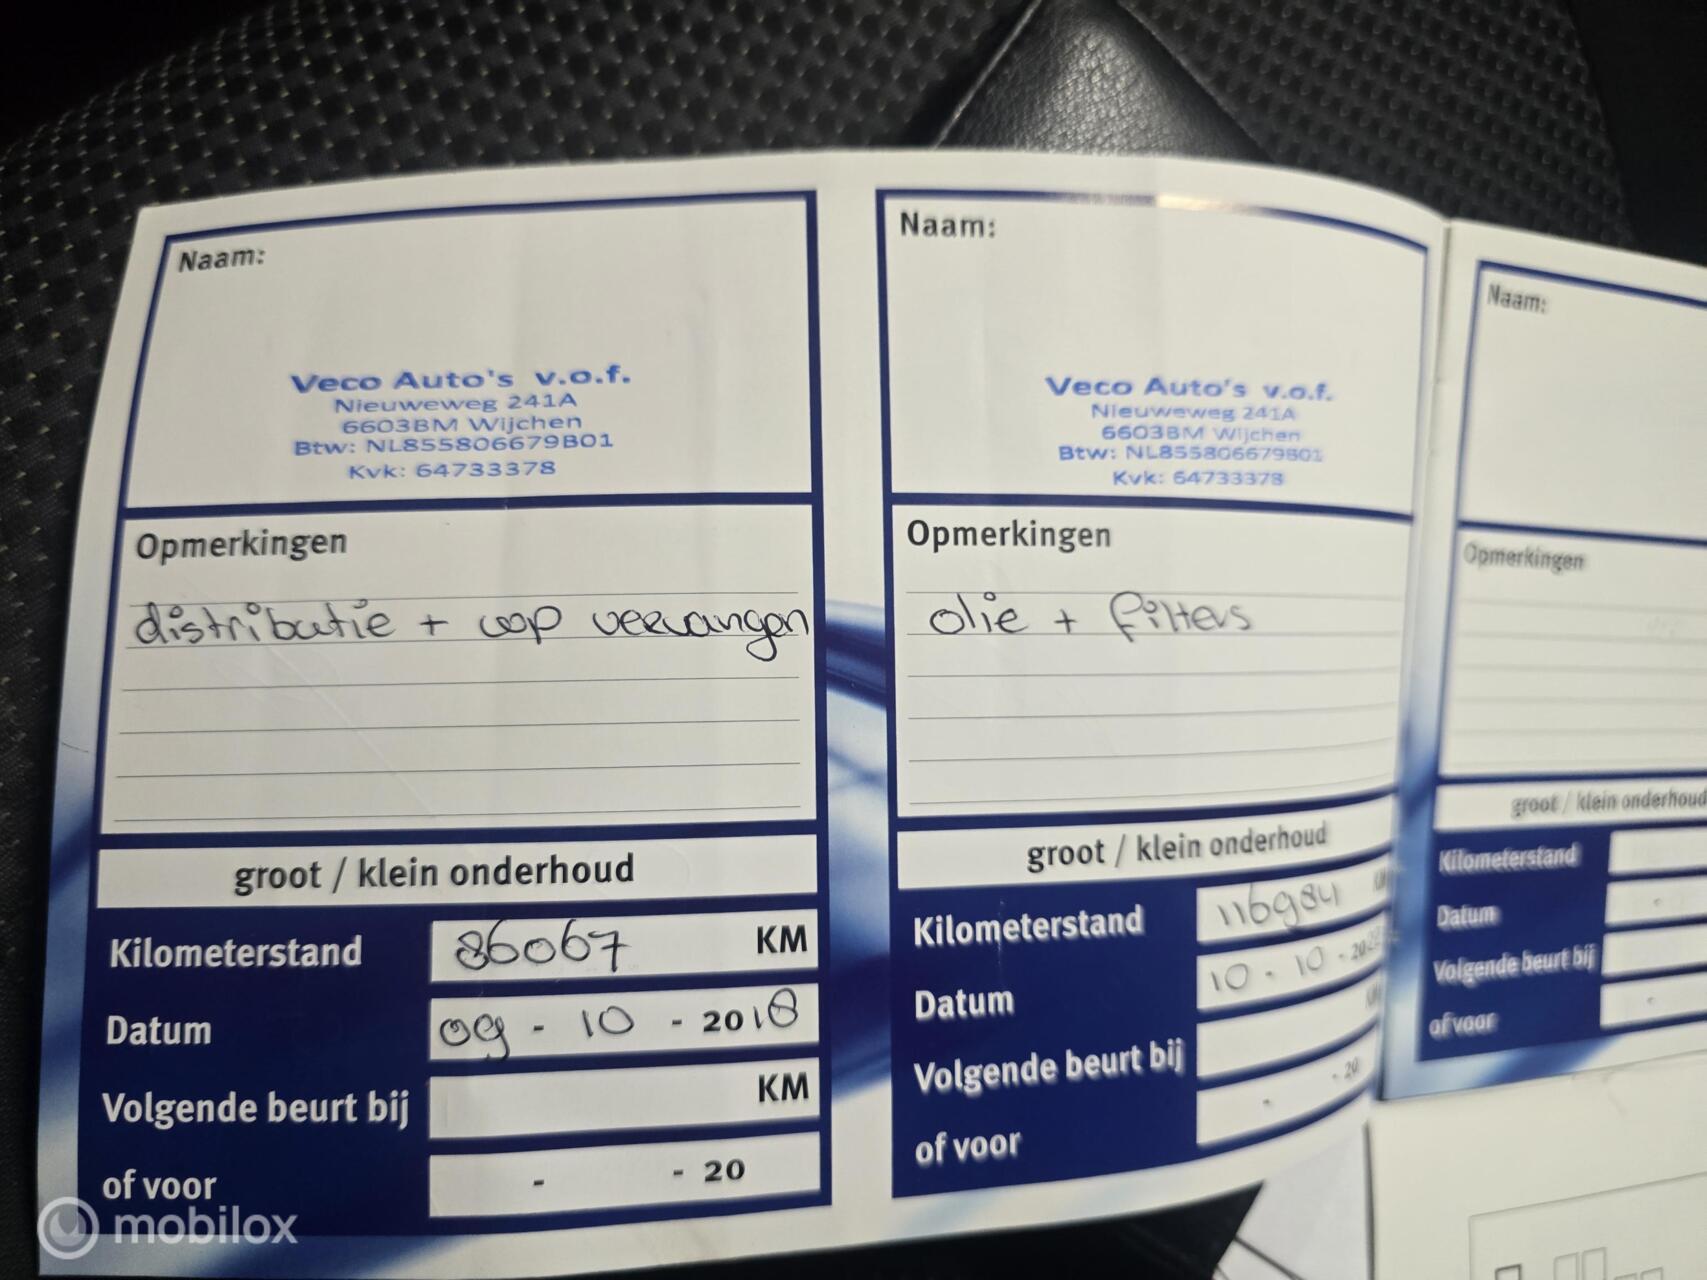 Naam:
Veco Auto's v.o.f.
Nieuweweg 241A
6603BM Wijchen
Btw: NL855806679B01
Kvk: 64733378
Opmerkingen
distributie + wop vervangen
groot / klein onderhoud
Kilometerstand 86067 KM
Datum 09 - 10 - 2018
Volgende beurt bij KM
of voor - - 20
Naam:
Veco Auto's v.o.f.
Nieuweweg 241A
6603BM Wijchen
Btw: NL855806679B01
Kvk: 64733378
Opmerkingen
olie + filters
groot / klein onderhoud
Kilometerstand 116984 KM
Datum 10 - 10 - 20
Volgende beurt bij KM
of voor - - 20
Naam:
Opmerkingen
groot / klein onderhoud
Kilometerstand
Datum -
Volgende beurt bij
of voor -
mobilox